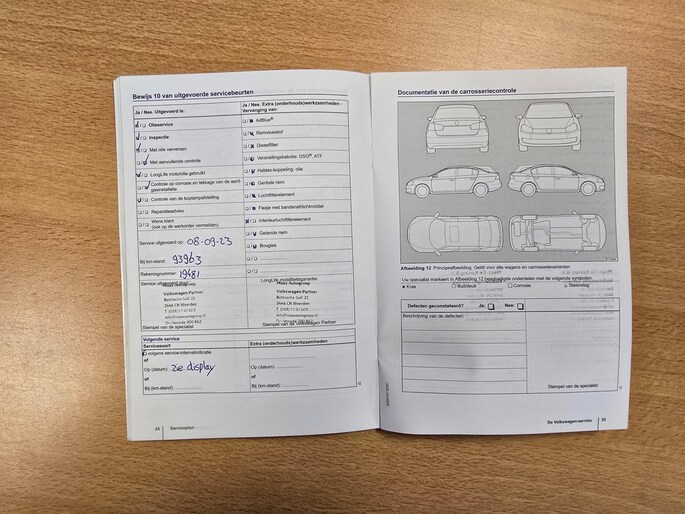 Bewijs 10 van uitgevoerde servicebeurten
Ja / Nee. Uitgevoerd is:
Olieservice
Inspectie
Met olie verversen
Met aanvullende controle
LongLife motorolie gebruikt
Controle op corrosie en lekkage van de aard-
gasinstallatie
Controle van de koplampafstelling
Reparatieadvies
Wens klant
(ook op de werkorder vermelden)
Service uitgevoerd op: 08-09-23
Bij km-stand: 93963
Rekeningnummer: 19481
Service uitgevoerd door:
Maas Autogroep
Volkswagen Partner
Botnische Golf 22
3446 CN Woerden
Stempel van de specialist
Ja / Nee. Extra (onderhouds)werkzaamheden -
Vervanging van:
AdBlue®
Remvloeistof
Dieselfilter
Versnellingsbakolie: DSG®, ATF
Haldex-koppeling: olie
Geribde riem
Luchtfilterelement
Flesje met bandenafdichtmiddel
Interieurluchtfilterelement
Getande riem
Bougies
LongLife mobiliteitsgarantie:
Maas Autogroep
Volkswagen Partner
Botnische Golf 22
3446 CN Woerden
Stempel van de Volkswagen Partner
Volgende service
Servicesoort
volgens service-intervalindicatie
of
Op (datum): zie display
of
Bij (km-stand):
Extra (onderhouds)werkzaamheden
Op (datum):
of
Bij (km-stand):
24 Serviceplan
Documentatie van de carrosseriecontrole
Afbeelding 12 Principeafbeelding. Geldt voor alle wagens en carrosserievarianten
Uw specialist markeert in Afbeelding 12 beschadigde onderdelen met de volgende symbolen:
Kras Buil/deuk Corrosie Steenslag
Defecten geconstateerd? Ja: Nee:
Beschrijving van de defecten:
Stempel van de specialist
De Volkswagen-service 25